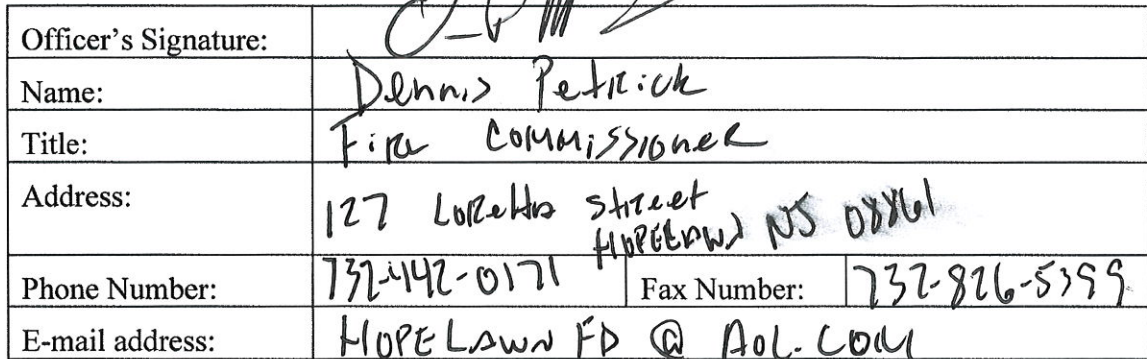 Officer's Signature:
Name: Dennis Petrick
Title: Fire Commissioner
Address: 127 Loretta Street
HOPELAWN NJ 08861
Phone Number: 732-442-0171 Fax Number: 732-826-5399
E-mail address: HOPELAWN FD @ AOL.COM